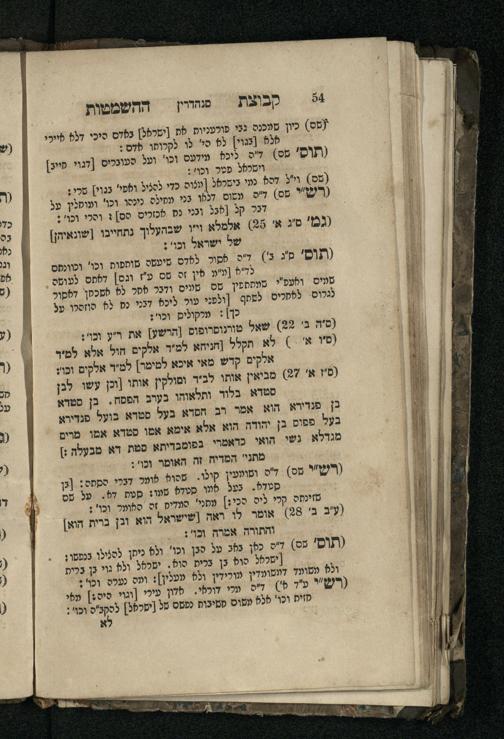 54 קבוצת סנהדרין ההשמטות
(שם) כיון שמכנה גבי פורעניות את [ישראל] באדם היכי דלא איירי
אלא [בגוי] לא הי' לו לקרותו אדם :
(תוס' שם) ד"ה ליכא מידעם וכו' ועל העוברים [דגוי חייב]
וישראל פטר וכו' :
(שם) וי"ל דהא נמי בישראל [מלוה כדי להציל ואפי' בגוי] שרי :
(רש"י שם) ד"ה משום דלאו בני מחילה נינהו וכו' ומוחלין על
דבר קל [אבל ובני נח אכזרים הם] : והרי וכו' :
(גמ' ס"ג א' 25) אלמלא וי"ו שבהעלוך נתחייבו [שונאיהן]
של ישראל וכו' :
(תוס' ס"ג ב') ד"ה אסור לאדם שיעשה שותפות וכו' וכוונתם
לד"א [מ"מ אין זה שם ע"ז וגם] דאתם לעושה
שמים ואעפ"י שמתתפין שם שמים ודבר אחר לא אשכחן דאסור
לגרום לאחרים לשתף [ולפני עור ליכא דבני נח לא הוזהרו על
כך] : מרקולים וכו' :
(ס"ה ב' 22) שאל טורנוסרופוס [הרשע] את ר"ע וכו' :
(ס"ו א' ) לא תקלל [הניחא למ"ד אלקים חול אלא למ"ד
אלקים קדש מאי איכא למימר] למ"ד אלקים וכו' :
(ס"ז א' 27) מביאין אותו לב"ד וסוקלין אותו [וכן עשו לבן
סטדא בלוד ותלאוהו בערב הפסח. בן סטדא
בן פנדירא הוא אמר רב חסדא בעל סטדא בועל פנדירא
בעל פפוס בן יהודה הוא אלא אימא אמו סטדא אמו מרים
מגדלא נשי הואי כדאמרי בפומבדיתא סטת דא מבעלה :]
מתני' המדיח זה האומר וכו' :
(רש"י שם) ד"ה ושומעין קולו. שהוא אומר דברי הסתה : [בן
סטדא. בעל אמו סטדא שמו : סטת דא. על שם
שזינתה קרי ליה הכי :] מתני' המדיח זה האומר וכו' :
(ע"ב ב' 28) אומר לו ראה [שישראל הוא ובן ברית הוא]
והתורה אמרה וכו' :
(תוס' שם) ד"ה כאן באב על הבן וכו' ולא ניתן להצילו בנפשו :
[ישראל הוא בן ברית הוא. ישראל ולא גוי בן ברית
ולא משומד דמשומדין מורידין ולא מעלין] : ומה נערה וכו' :
(רש"י ע"ד א') ד"ה מרי דוראי. אדון עירי [וגוי היה :] מאי
חזית וכו' אלא משום חשיבות נפשם של [ישראל] להקב"ה וכו' :
לא